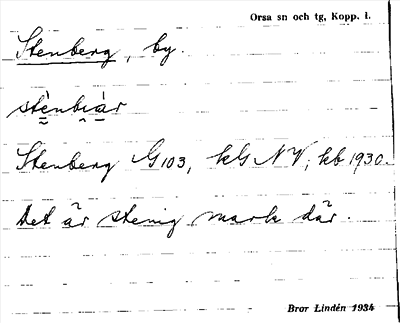 Orsa sn och tg, Kopp. l.
Stenberg, by.
stènbiàr
Stenberg G103, kG NV, kb 1930.
Det är stenig mark där.
Bror Lindén 1934